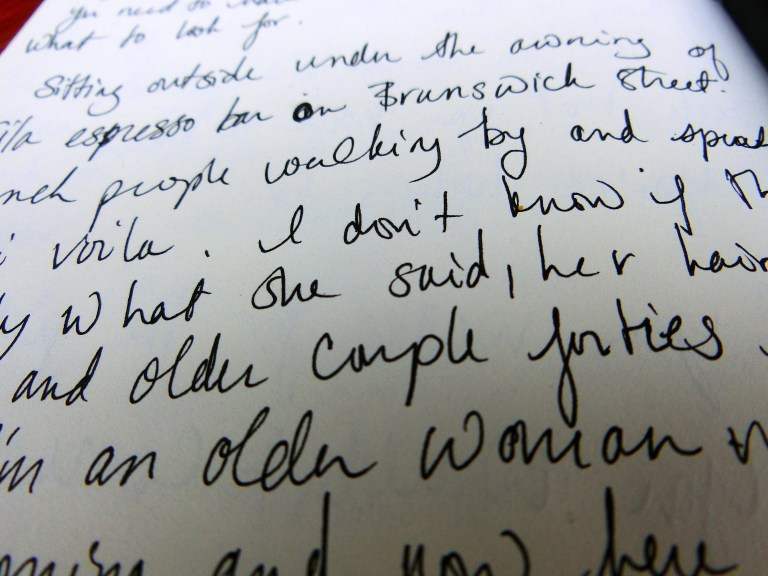 you need to
what to look for.
Sitting outside under the awning of
espresso bar on Brunswick Street.
people walking by and
voila. I don't know if
what she said, her hair
and older couple forties
an older woman
and now here